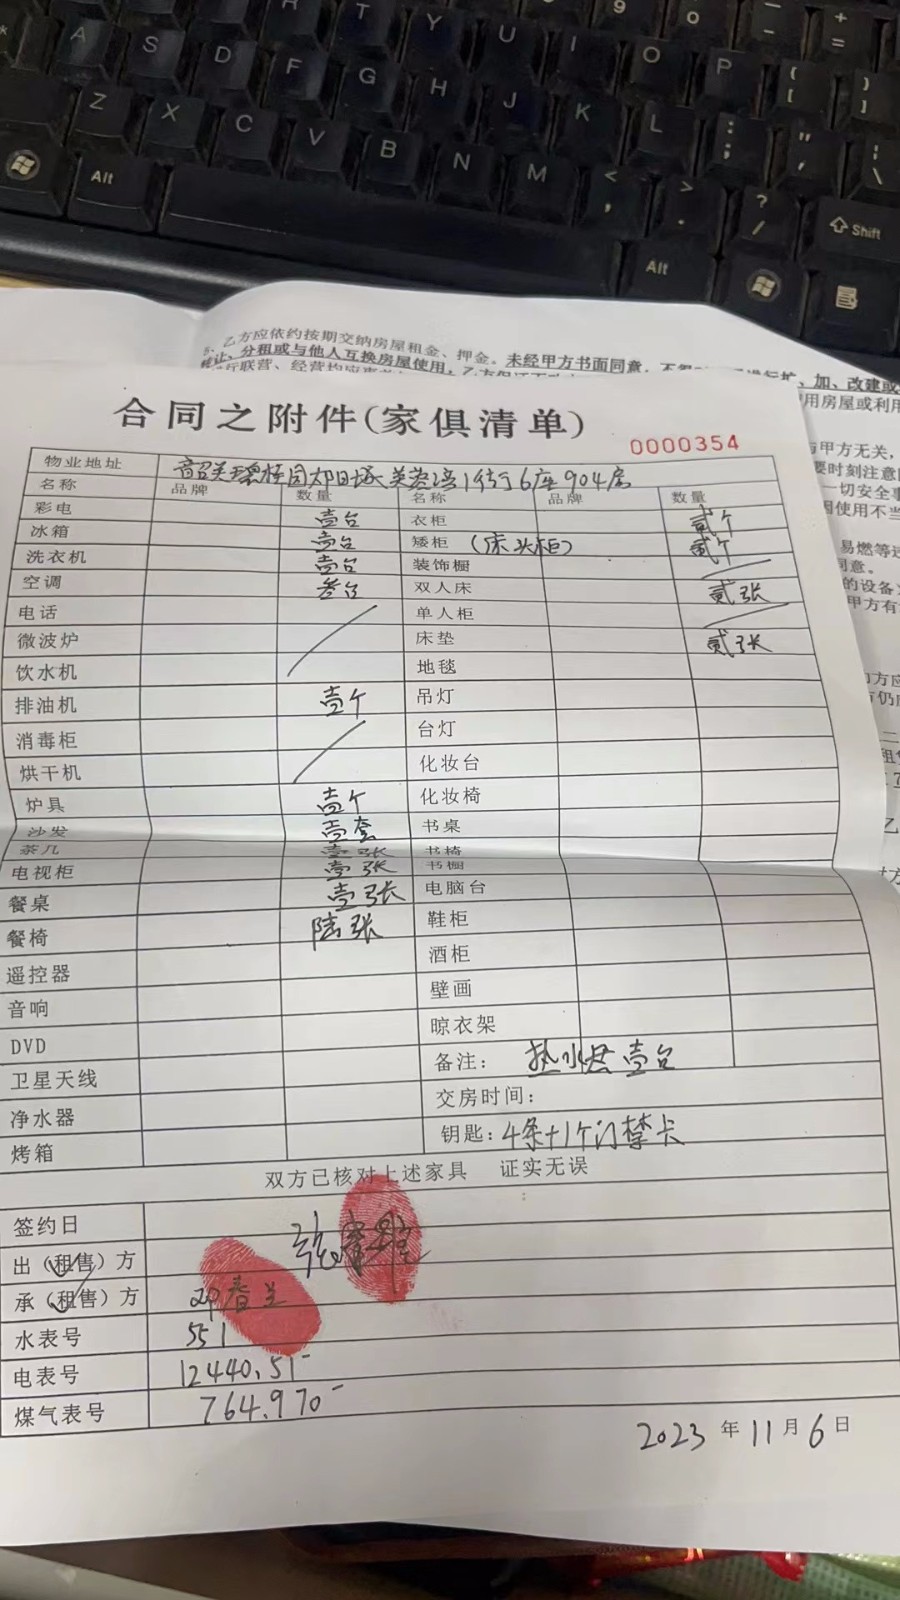 R T Y U I 9 O 0 P - + =
A S D F G H J K L : ; " ' { [ } ]
Z X C V B N M < , > . ? / | \
Alt Alt Shift
5、乙方应依约按期交纳房屋租金、押金。未经甲方书面同意，
扩、加、改建或
转让、分租或与他人互换房屋使用，
用房屋或利用
与甲方无关，
要时刻注意
一切安全事
因使用不当
易燃等违
同意。
的设备
甲方有
合同之附件(家俱清单)
0000354
物业地址 韶关碧桂园 芙蓉 1街6座904房
名称 品牌 数量 名称 品牌 数量
彩电 壹台 衣柜 贰个
冰箱 壹台 矮柜 (床头柜) 贰个
洗衣机 壹台 装饰橱
空调 叁台 双人床 贰张
电话 单人柜
微波炉 床垫 贰张
饮水机 地毯
排油机 壹个 吊灯
消毒柜 台灯
烘干机 化妆台
炉具 壹个 化妆椅
沙发 壹套 书桌
茶几 壹张 书椅
电视柜 壹张 书橱
餐桌 壹张 电脑台
餐椅 陆张 鞋柜
遥控器 酒柜
音响 壁画
DVD 晾衣架
卫星天线 备注: 热水器 壹台
净水器 交房时间:
烤箱 钥匙: 4条+1个门禁卡
双方已核对上述家具 证实无误
签约日
出(租售)方 张
承(租售)方 邓春兰
水表号 551
电表号 12440.51
煤气表号 764.970
2023 年 11 月 6 日